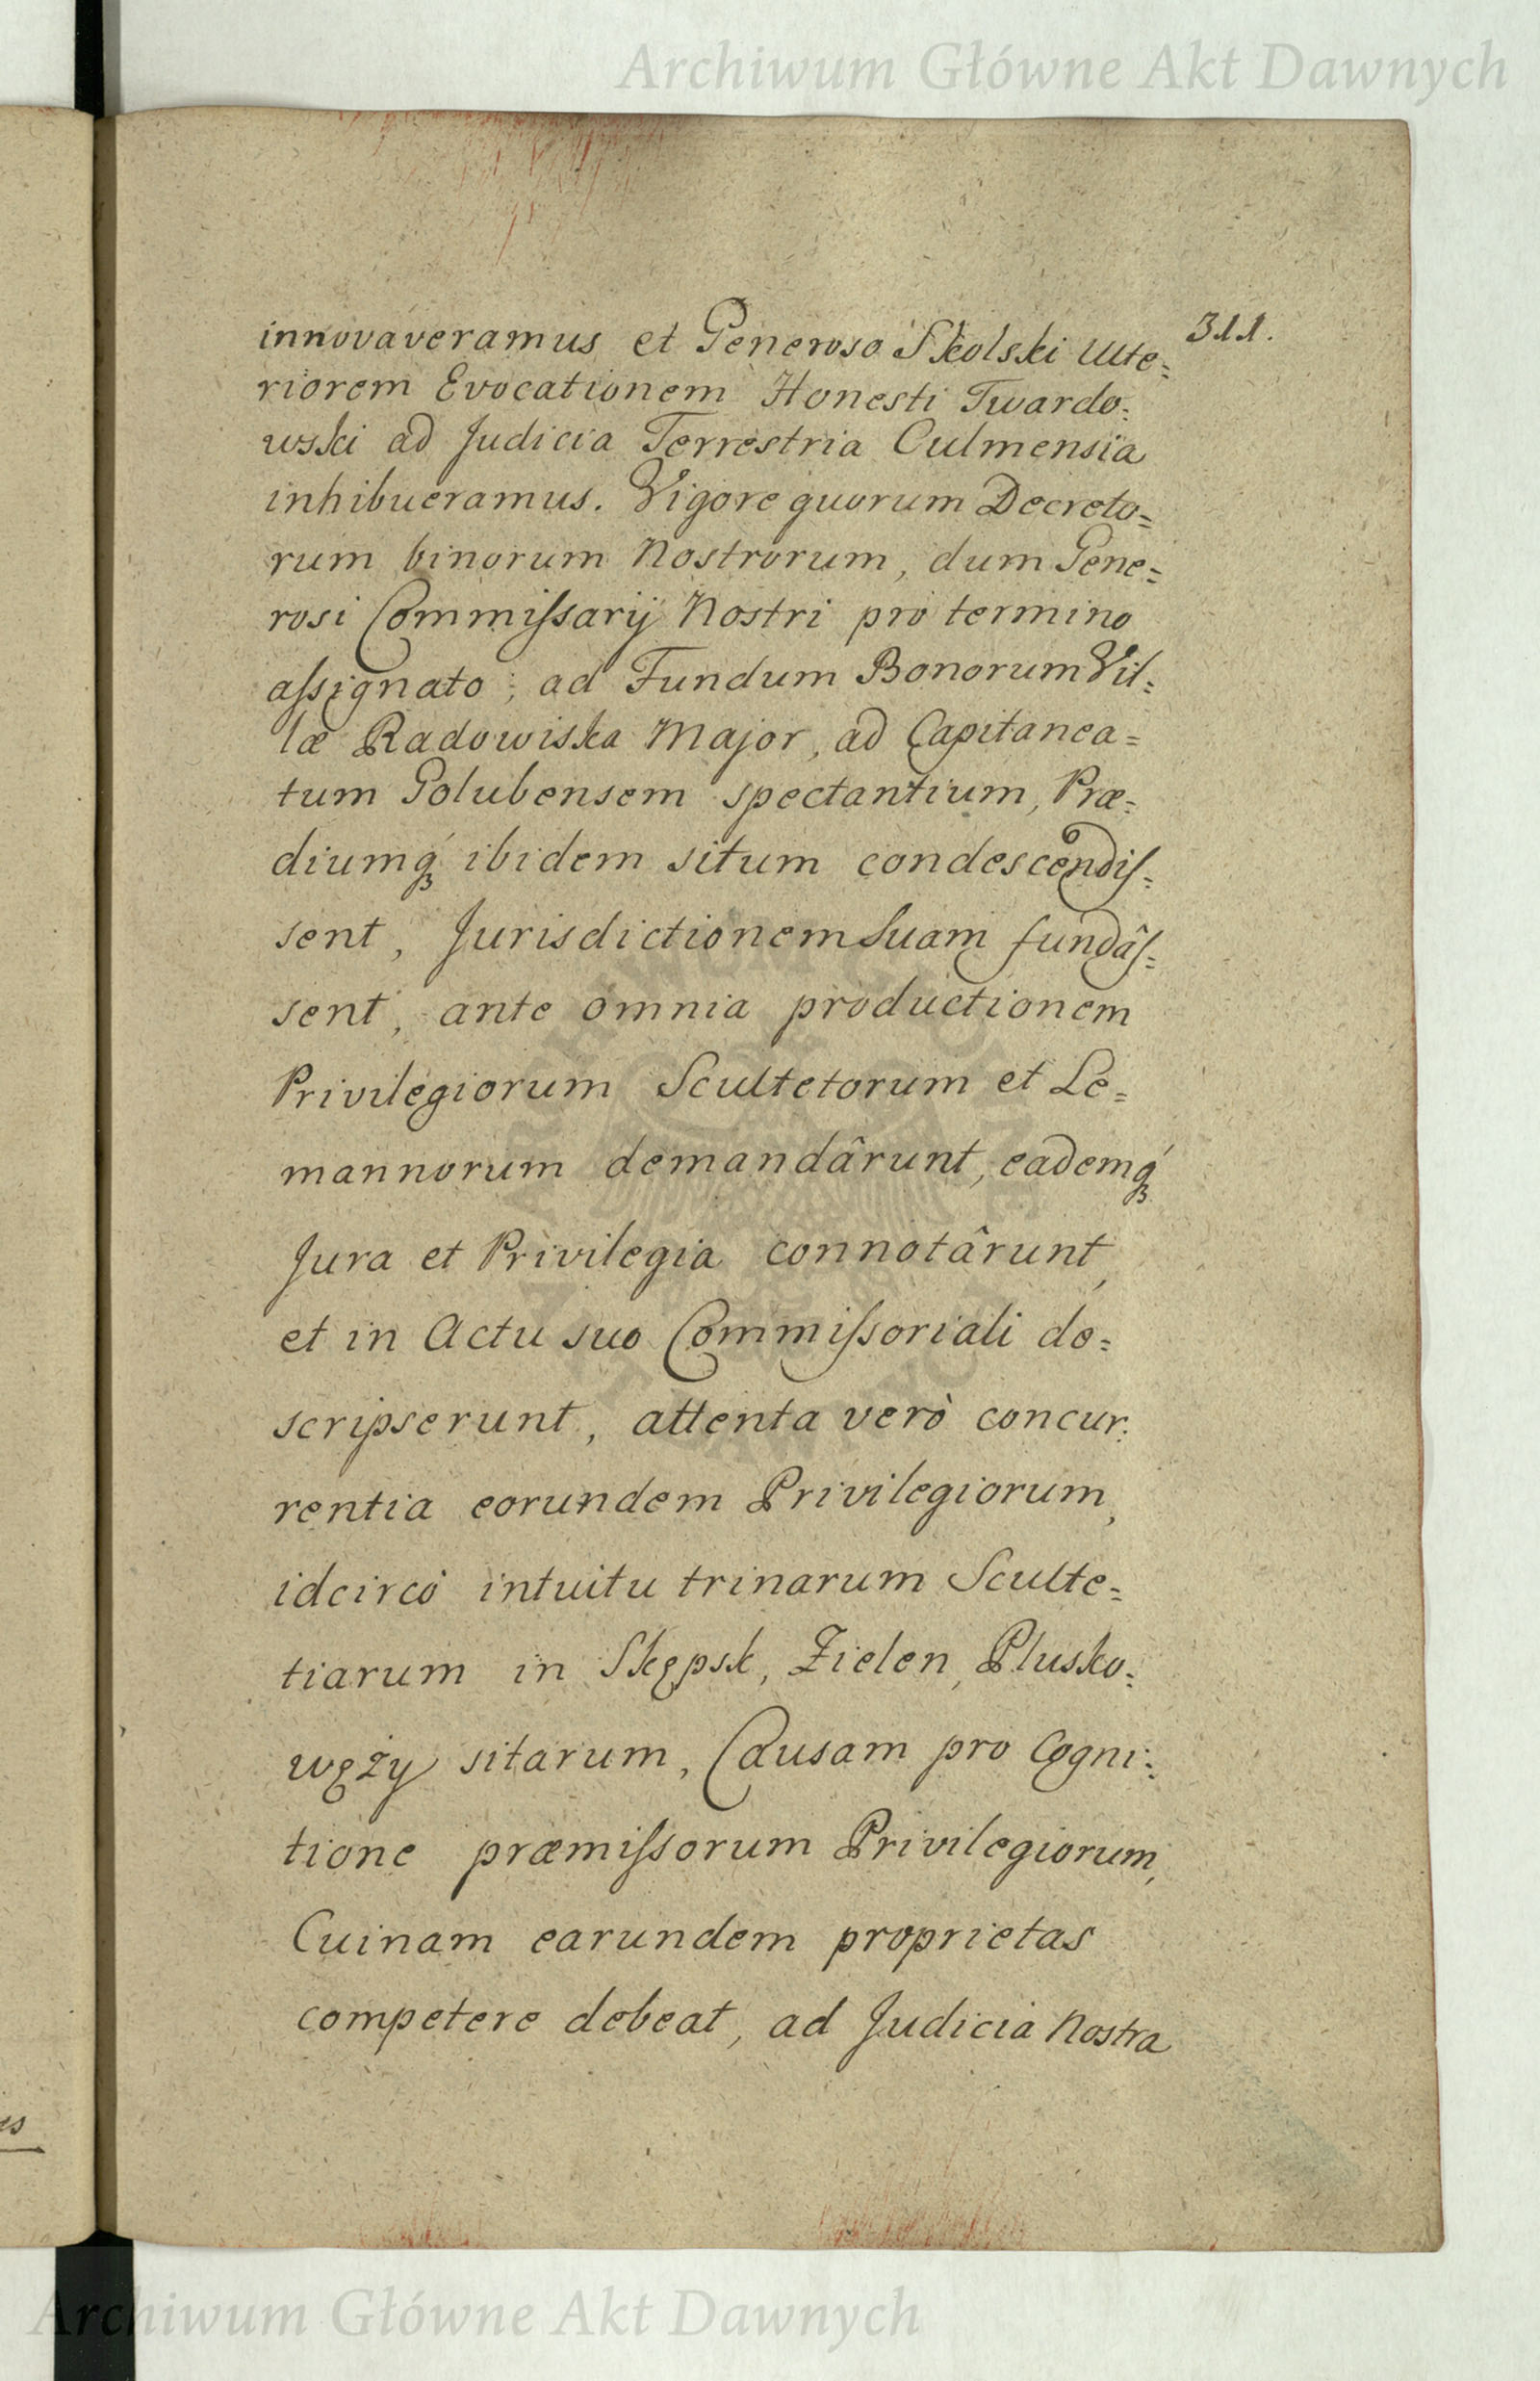 Archiwum Główne Akt Dawnych
311.
innovaveramus et Generoso Skolski Ulte=
riorem Evocationem Honesti Twardo=
wski ad Judicia Terrestria Culmensia
inhibueramus. Vigore quorum Decreto=
rum binorum Nostrorum, dum Gene=
rosi Commiſsarij Nostri pro termino
aſsignato, ad Fundum Bonorum Vil=
læ Radowiska Major, ad Capitanea=
tum Golubensem spectantium, Præ=
diumq́ꝫ ibidem situm condescendiſ=
sent, Jurisdictionem Suam fundâſ=
sent, ante omnia productionem
Privilegiorum Scultetorum et Le=
mannorum demandârunt, eademq́ꝫ
Jura et Privilegia connotârunt,
et in Actu suo Commiſsoriali de=
scripserunt, attenta verò concur=
rentia eorundem Privilegiorum,
idcircò intuitu trinarum Sculte=
tiarum in Skępsk, Zielen, Plusko=
węży sitarum, Causam pro Cogni=
tione præmiſsorum Privilegiorum,
Cuinam earundem proprietas
competere debeat, ad Judicia Nostra
es
Archiwum Główne Akt Dawnych